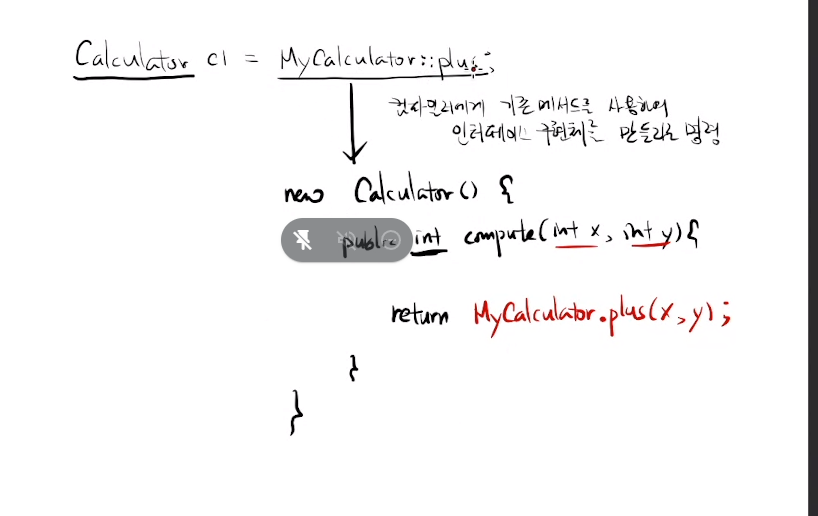 Calculator c1 = MyCalculator::plus;
컴파일러에게 기존 메서드를 사용하여
인터페이스 구현체를 만들라고 명령
new Calculator() {
public int compute(int x, int y){
return MyCalculator.plus(x, y);
}
}